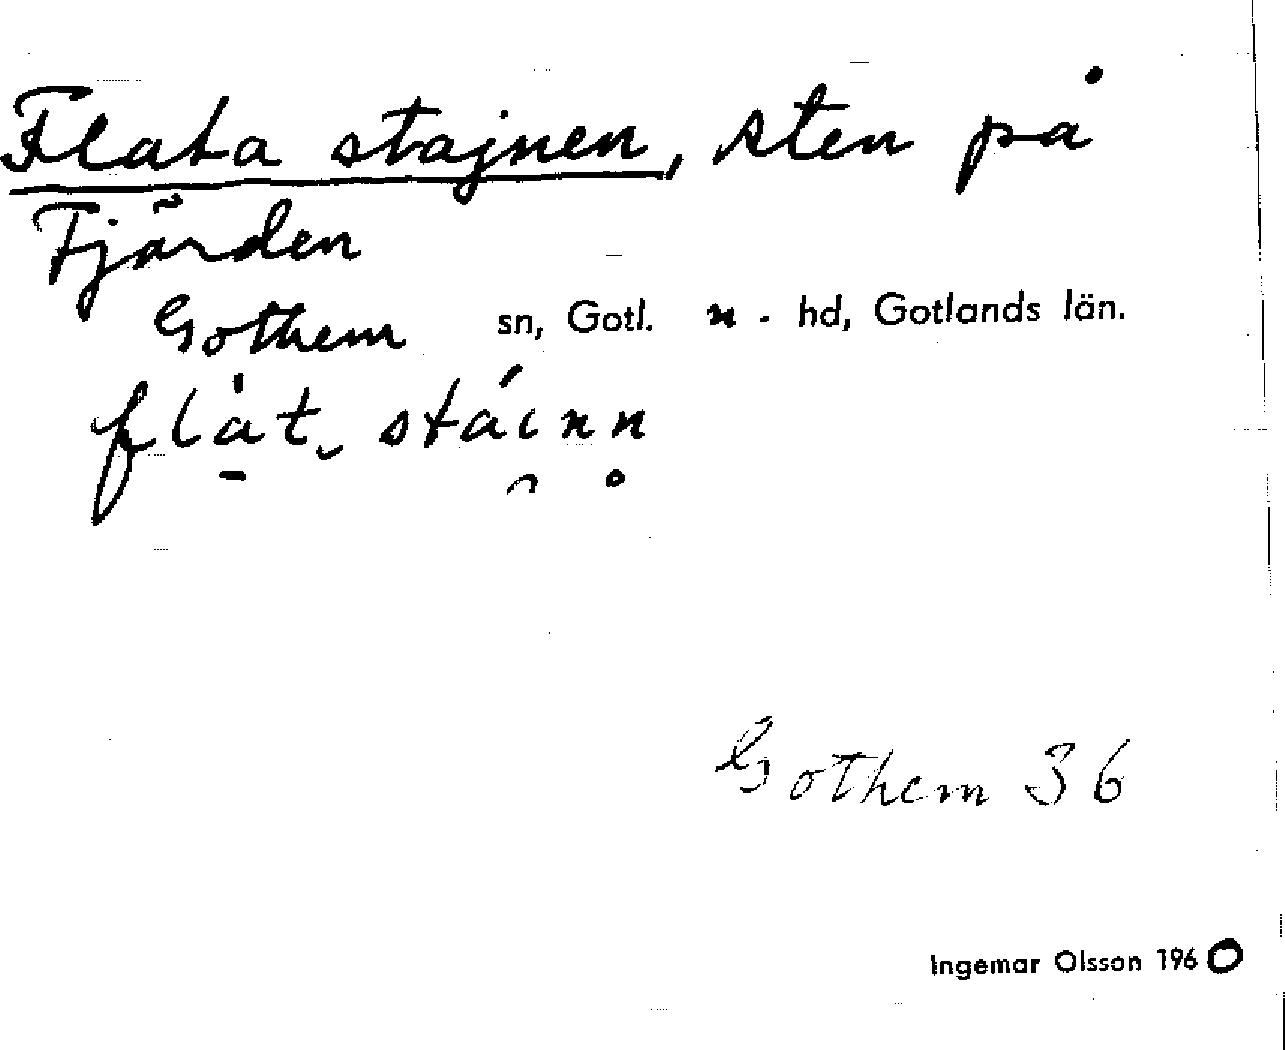 Flata stajnen, sten på
Fjärden
Gothem sn, Gotl. n. hd, Gotlands län.
flàt stáinn
Gothem 36
Ingemar Olsson 1960